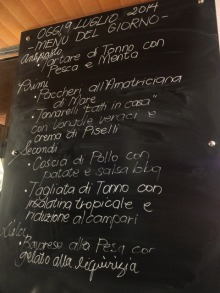 OGGI, 9 LUGLIO 2014
- MENÙ DEL GIORNO -
Antipasto
• Tartare di Tonno con
Pesca e Menta
Primi
• Paccheri all'Amatriciana
di Mare
• Tonnarelli "fatti in casa"
con vongole veraci e
crema di Piselli
Secondi
• Coscia di Pollo con
patate e salsa bbq
• Tagliata di Tonno con
insalatina tropicale e
riduzione al campari
Dolci
• Bavarese alla Pesca con
gelato alla liquirizia